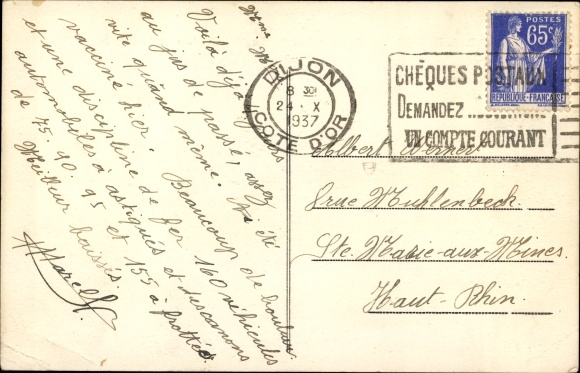 Mme M
Voilà déjà jours
au jus de passé, assez
vite quand même. J'ai été
vacciné hier. Beaucoup de boulot
et une discipline de fer 160 véhicules
automobiles à astiquer et des canons
de 75. 90. 95 et 155 à frotter.
Meilleur baisers.
Marcel
DIJON
8 30
24 - X
1937
COTE D'OR
CHÈQUES POSTAUX
DEMANDEZ
UN COMPTE COURANT
POSTES
65c
RÉPUBLIQUE-FRANÇAISE
Albert Werner
8 rue Muhlenbeck.
Ste. Marie-aux-Mines.
Haut-Rhin.